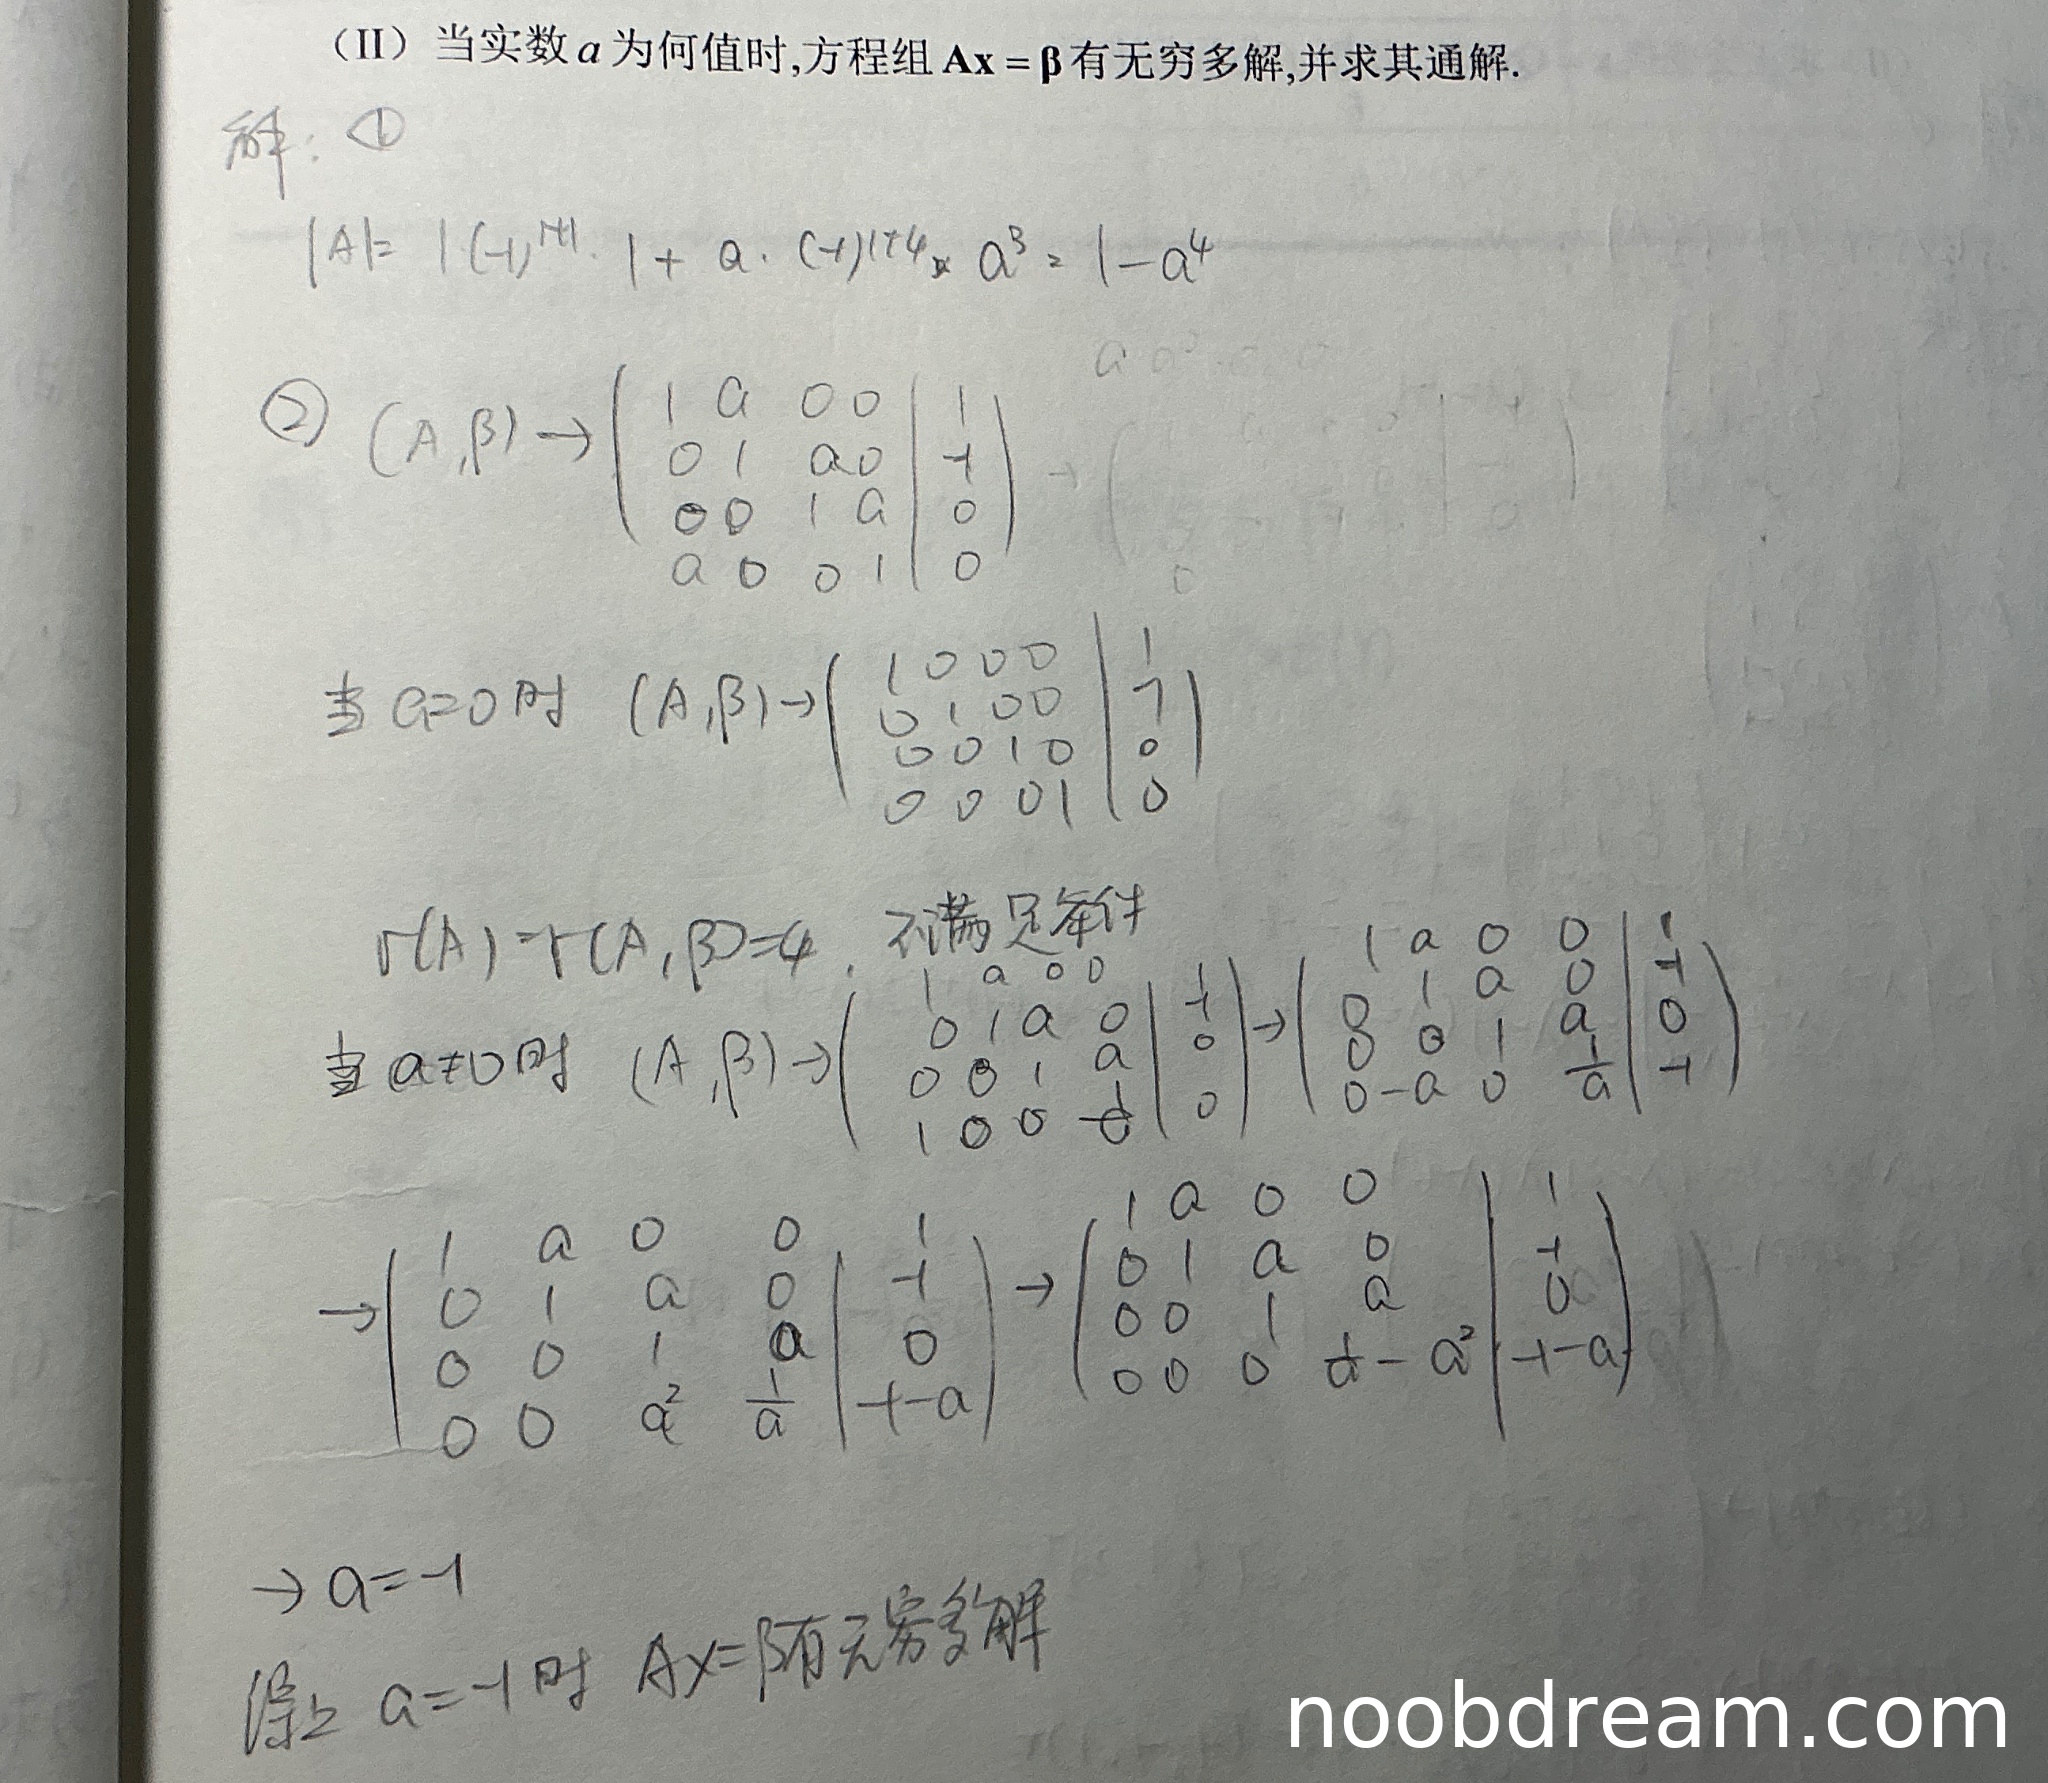 （II）当实数a为何值时,方程组Ax=β有无穷多解,并求其通解.
解: ①
|A|= 1(-1)^{1+1}·1+ a·(-1)^{1+4}× a³ = 1-a⁴
② (A,β)→
1 a 0 0 | 1
0 1 a 0 | -1
0 0 1 a | 0
a 0 0 1 | 0
当a=0时 (A,β)→
1 0 0 0 | 1
0 1 0 0 | -1
0 0 1 0 | 0
0 0 0 1 | 0
r(A)=r(A,β)=4. 不满足条件
当a≠0时 (A,β)→
1 a 0 0 | 1
0 1 a 0 | -1
0 0 1 a | 0
1 0 0 1/a | 0
→
1 a 0 0 | 1
0 1 a 0 | -1
0 0 1 a | 0
0 -a 0 1/a | -1
→
1 a 0 0 | 1
0 1 a 0 | -1
0 0 1 a | 0
0 0 a² 1/a | -1-a
→
1 a 0 0 | 1
0 1 a 0 | -1
0 0 1 a | 0
0 0 0 1/a - a² | -1-a
→ a=-1
综上 a=-1时 Ax=β有无穷多解
noobdream.com